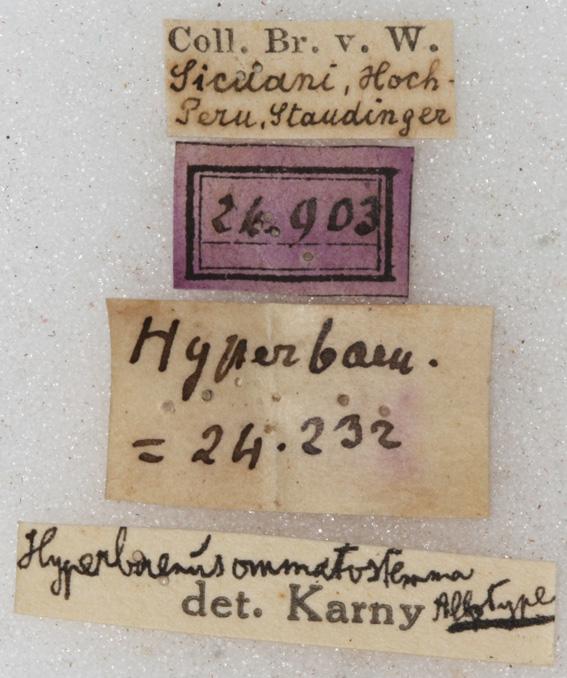 Coll. Br. v. W.
Sicuani, Hoch-
Peru, Staudinger
24.903
Hyperbaen.
= 24.232
Hyperbaenus ommatostemma
det. Karny Allotype